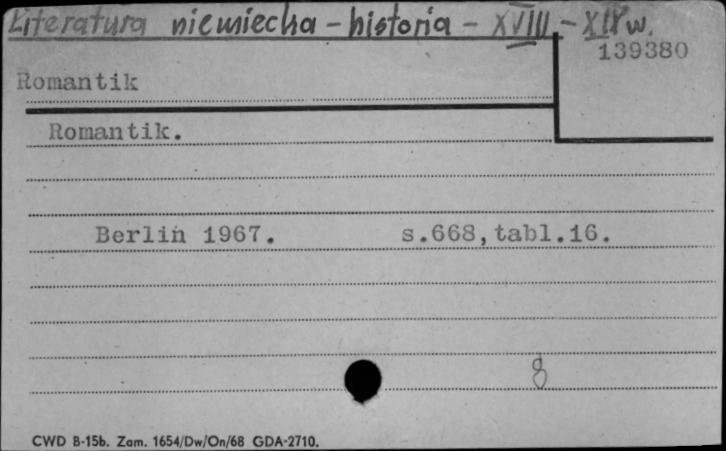 Literatura niemiecka - historia - XVIII - XIX w.
139380
Romantik
Romantik.
Berlin 1967. s.668,tabl.16.
8
CWD B-15b. Zam. 1654/Dw/On/68 GDA-2710.